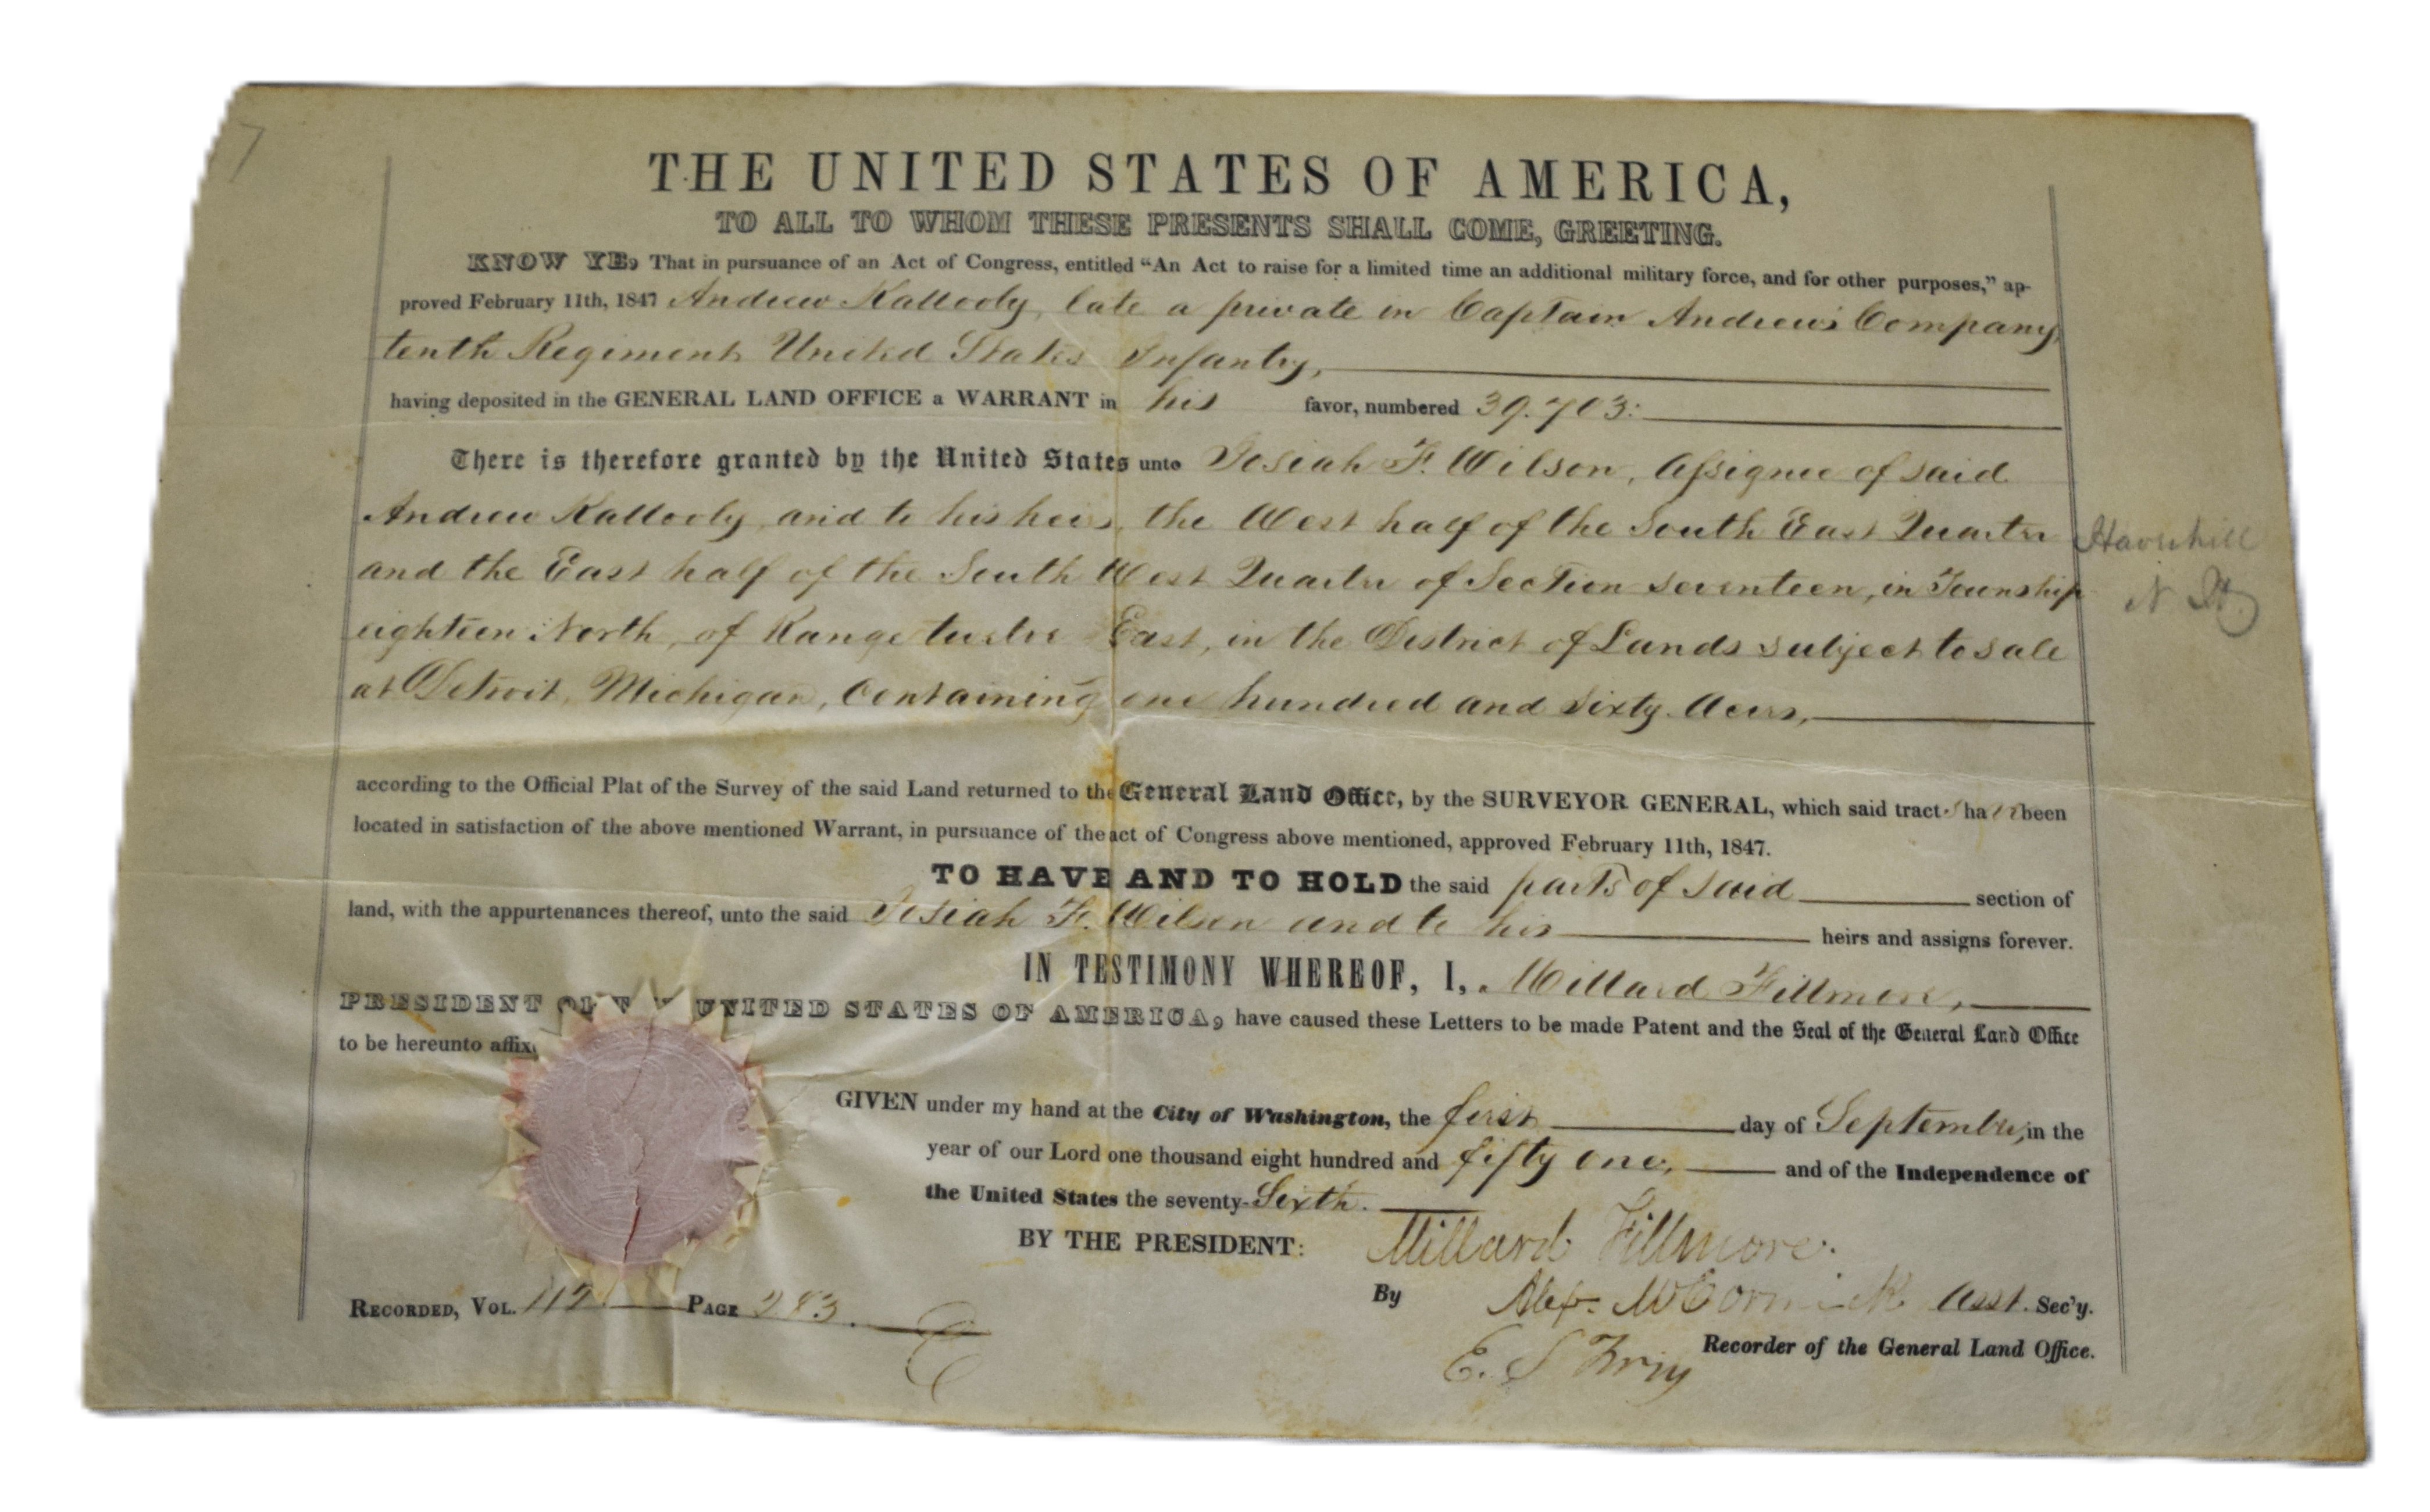 7
THE UNITED STATES OF AMERICA,
TO ALL TO WHOM THESE PRESENTS SHALL COME, GREETING.
KNOW YE, That in pursuance of an Act of Congress, entitled “An Act to raise for a limited time an additional military force, and for other purposes,” ap-
proved February 11th, 1847 Andrew late a private in Captain Andrews Company,
tenth Regiment United States Infantry,
having deposited in the GENERAL LAND OFFICE a WARRANT in his favor, numbered 39.703:
There is therefore granted by the United States unto Josiah F. Wilson, Assignee of said
Andrew and to his heirs, the West half of the South East Quarter
and the East half of the South West Quarter of Section seventeen, in Township
eighteen North, of Range twelve East, in the District of Lands subject to sale
at Detroit, Michigan, Containing one hundred and sixty Acres,
Haverhill
N. H.
according to the Official Plat of the Survey of the said Land returned to the General Land Office, by the SURVEYOR GENERAL, which said tracts have been
located in satisfaction of the above mentioned Warrant, in pursuance of the act of Congress above mentioned, approved February 11th, 1847.
TO HAVE AND TO HOLD the said parts of said section of
land, with the appurtenances thereof, unto the said Josiah F. Wilson and to his heirs and assigns forever.
IN TESTIMONY WHEREOF, I, Millard Fillmore,
PRESIDENT UNITED STATES OF AMERICA, have caused these Letters to be made Patent and the Seal of the General Land Office
to be hereunto affix
GIVEN under my hand at the City of Washington, the first day of September, in the
year of our Lord one thousand eight hundred and fifty one, and of the Independence of
the United States the seventy-Sixth.
BY THE PRESIDENT: Millard Fillmore.
By Alex. McCormick Asst. Sec'y.
RECORDED, VOL. 112 PAGE 283.
E. S. Recorder of the General Land Office.